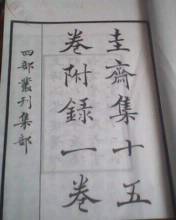 圭齋集十五
卷附錄一卷
四部叢刊集部